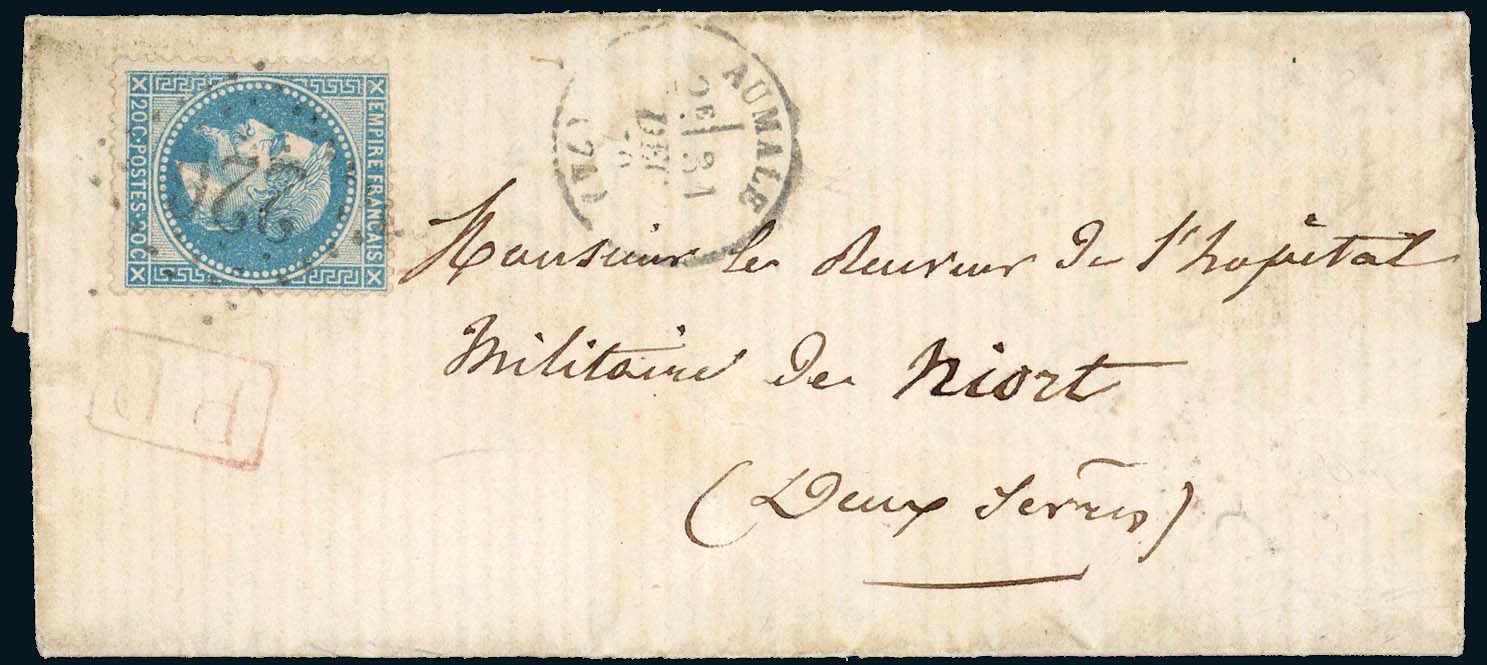 EMPIRE FRANÇAIS
20C·POSTES·20C
AUMALE
2E
31
DEC
70
(74)
P.P.
Monsieur le Directeur de l'hopital
Militaire de Niort
(Deux Sèvres)